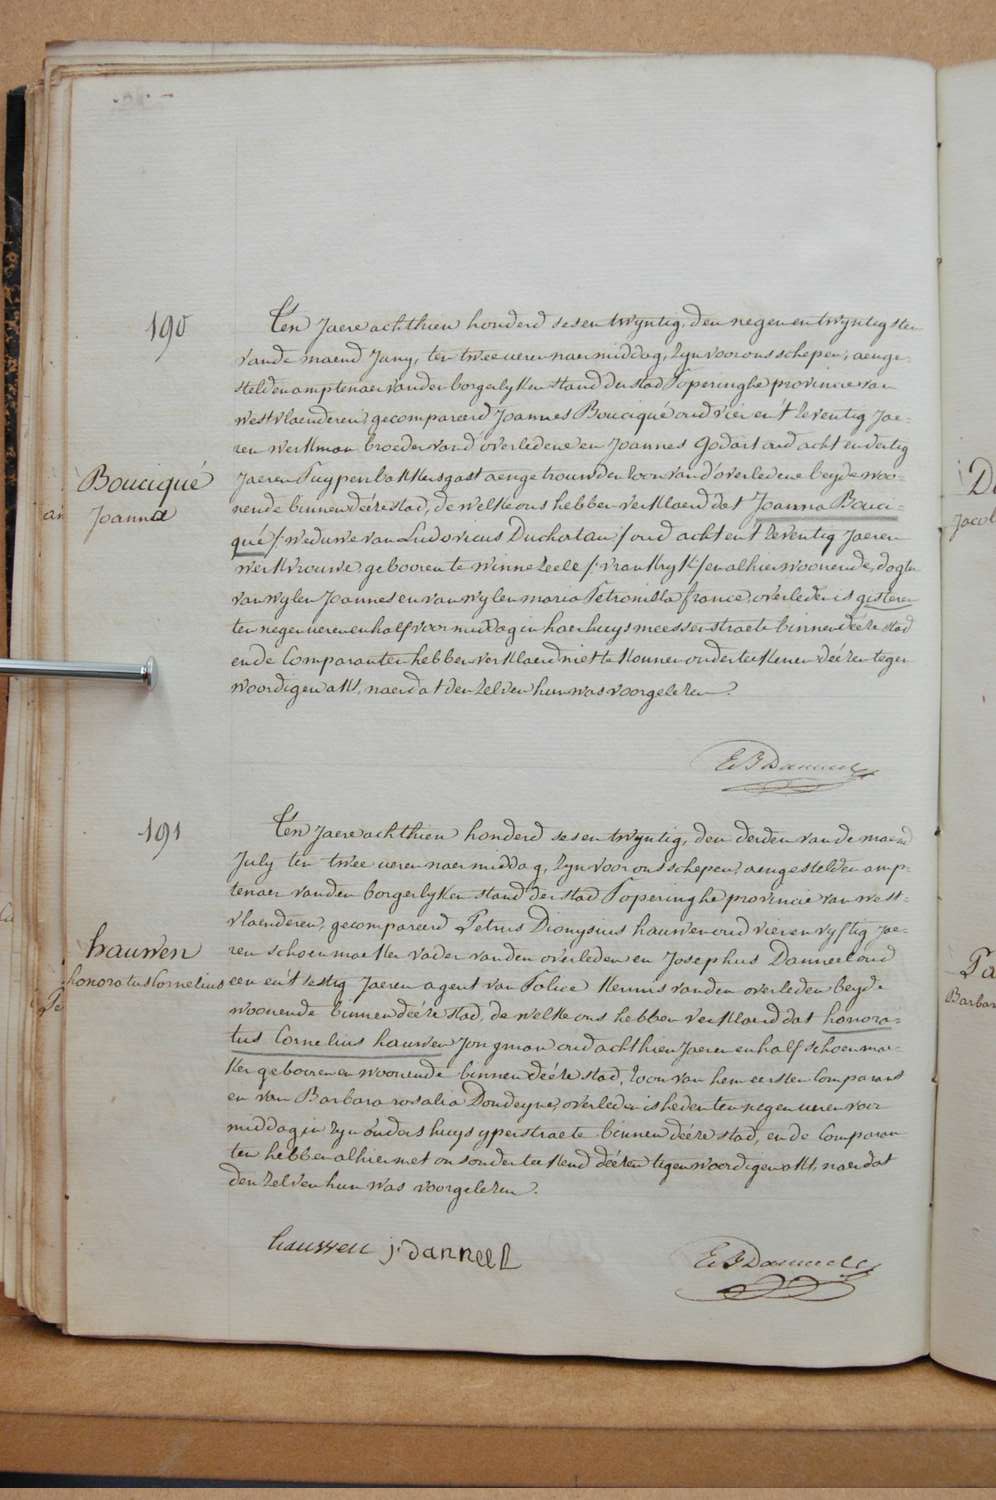 190
Ten Jaere achthien honderd sesentwyntig, den negenentwyntigsten
vande maend Juny, ten twee ueren naermiddag, zyn voor ons schepen, aenge-
stelden amptenaer vanden borgerlyken stand der stad Poperinghe provincie van
westvlaenderen, gecompareerd Joannes Bouciqué oud vier en 't zeventig Jae-
ren werkman broeder vand' overledene en Joannes Godart oud acht en dertig
Jaeren Puypenbakkersgast aengetrouwden zoon vand' overledene beyde woo-
nende binnen deéze stad, de welke ons hebben verklaerd dat Joanna Bouci-
qué / weduwe van Ludovicus Duchatau / oud acht en 't zeventig Jaeren
werkvrouwe gebooren te Winnezeele / vrankryk / en alhier woonende, dogter
van wylen Joannes en van wylen maria Petronilla france, overleden is gisteren
ten negen ueren en half voormiddag in haer huys meessen straete binnen deéze stad
en de Comparanten hebben verklaerd niet te konnen onderteekenen deézen tegen
woordigen akt, naer dat den zelven hun was voorgelezen.
Bouciqué
Joanna
191
Ten Jaere achthien honderd sesentwyntig, den derden van de maend
July ten twee ueren naermiddag, zyn voor ons schepen, aengestelden amp-
tenaer vanden borgerlyken stand der stad Poperinghe provincie van west-
vlaenderen, gecompareerd Petrus Dionysius hauwen oud vier en vyftig Jae-
ren schoenmaeker vader vanden overleden en Josephus Danneel oud
een en 't sestig Jaeren agent van Police kennis vanden overleden beyde
woonende binnen deéze stad, de welke ons hebben verklaerd dat honora-
tus Cornelius hauwen Jongman oud achthien Jaeren en half schoenmae-
ker gebooren en woonende binnen deéze stad, zoon van hem eersten Comparant
en van Barbara rosalia Doudeyne, overleden is heden ten negen ueren voor
middag in zyn ouders huys yperstraete binnen deéze stad, en de Comparan-
ten hebben alhier met ons onderteekend deézen tegenwoordigen akt, naer dat
den zelven hun was voorgelezen.
hauwen
honoratus Cornelius
hauwen j: danneel